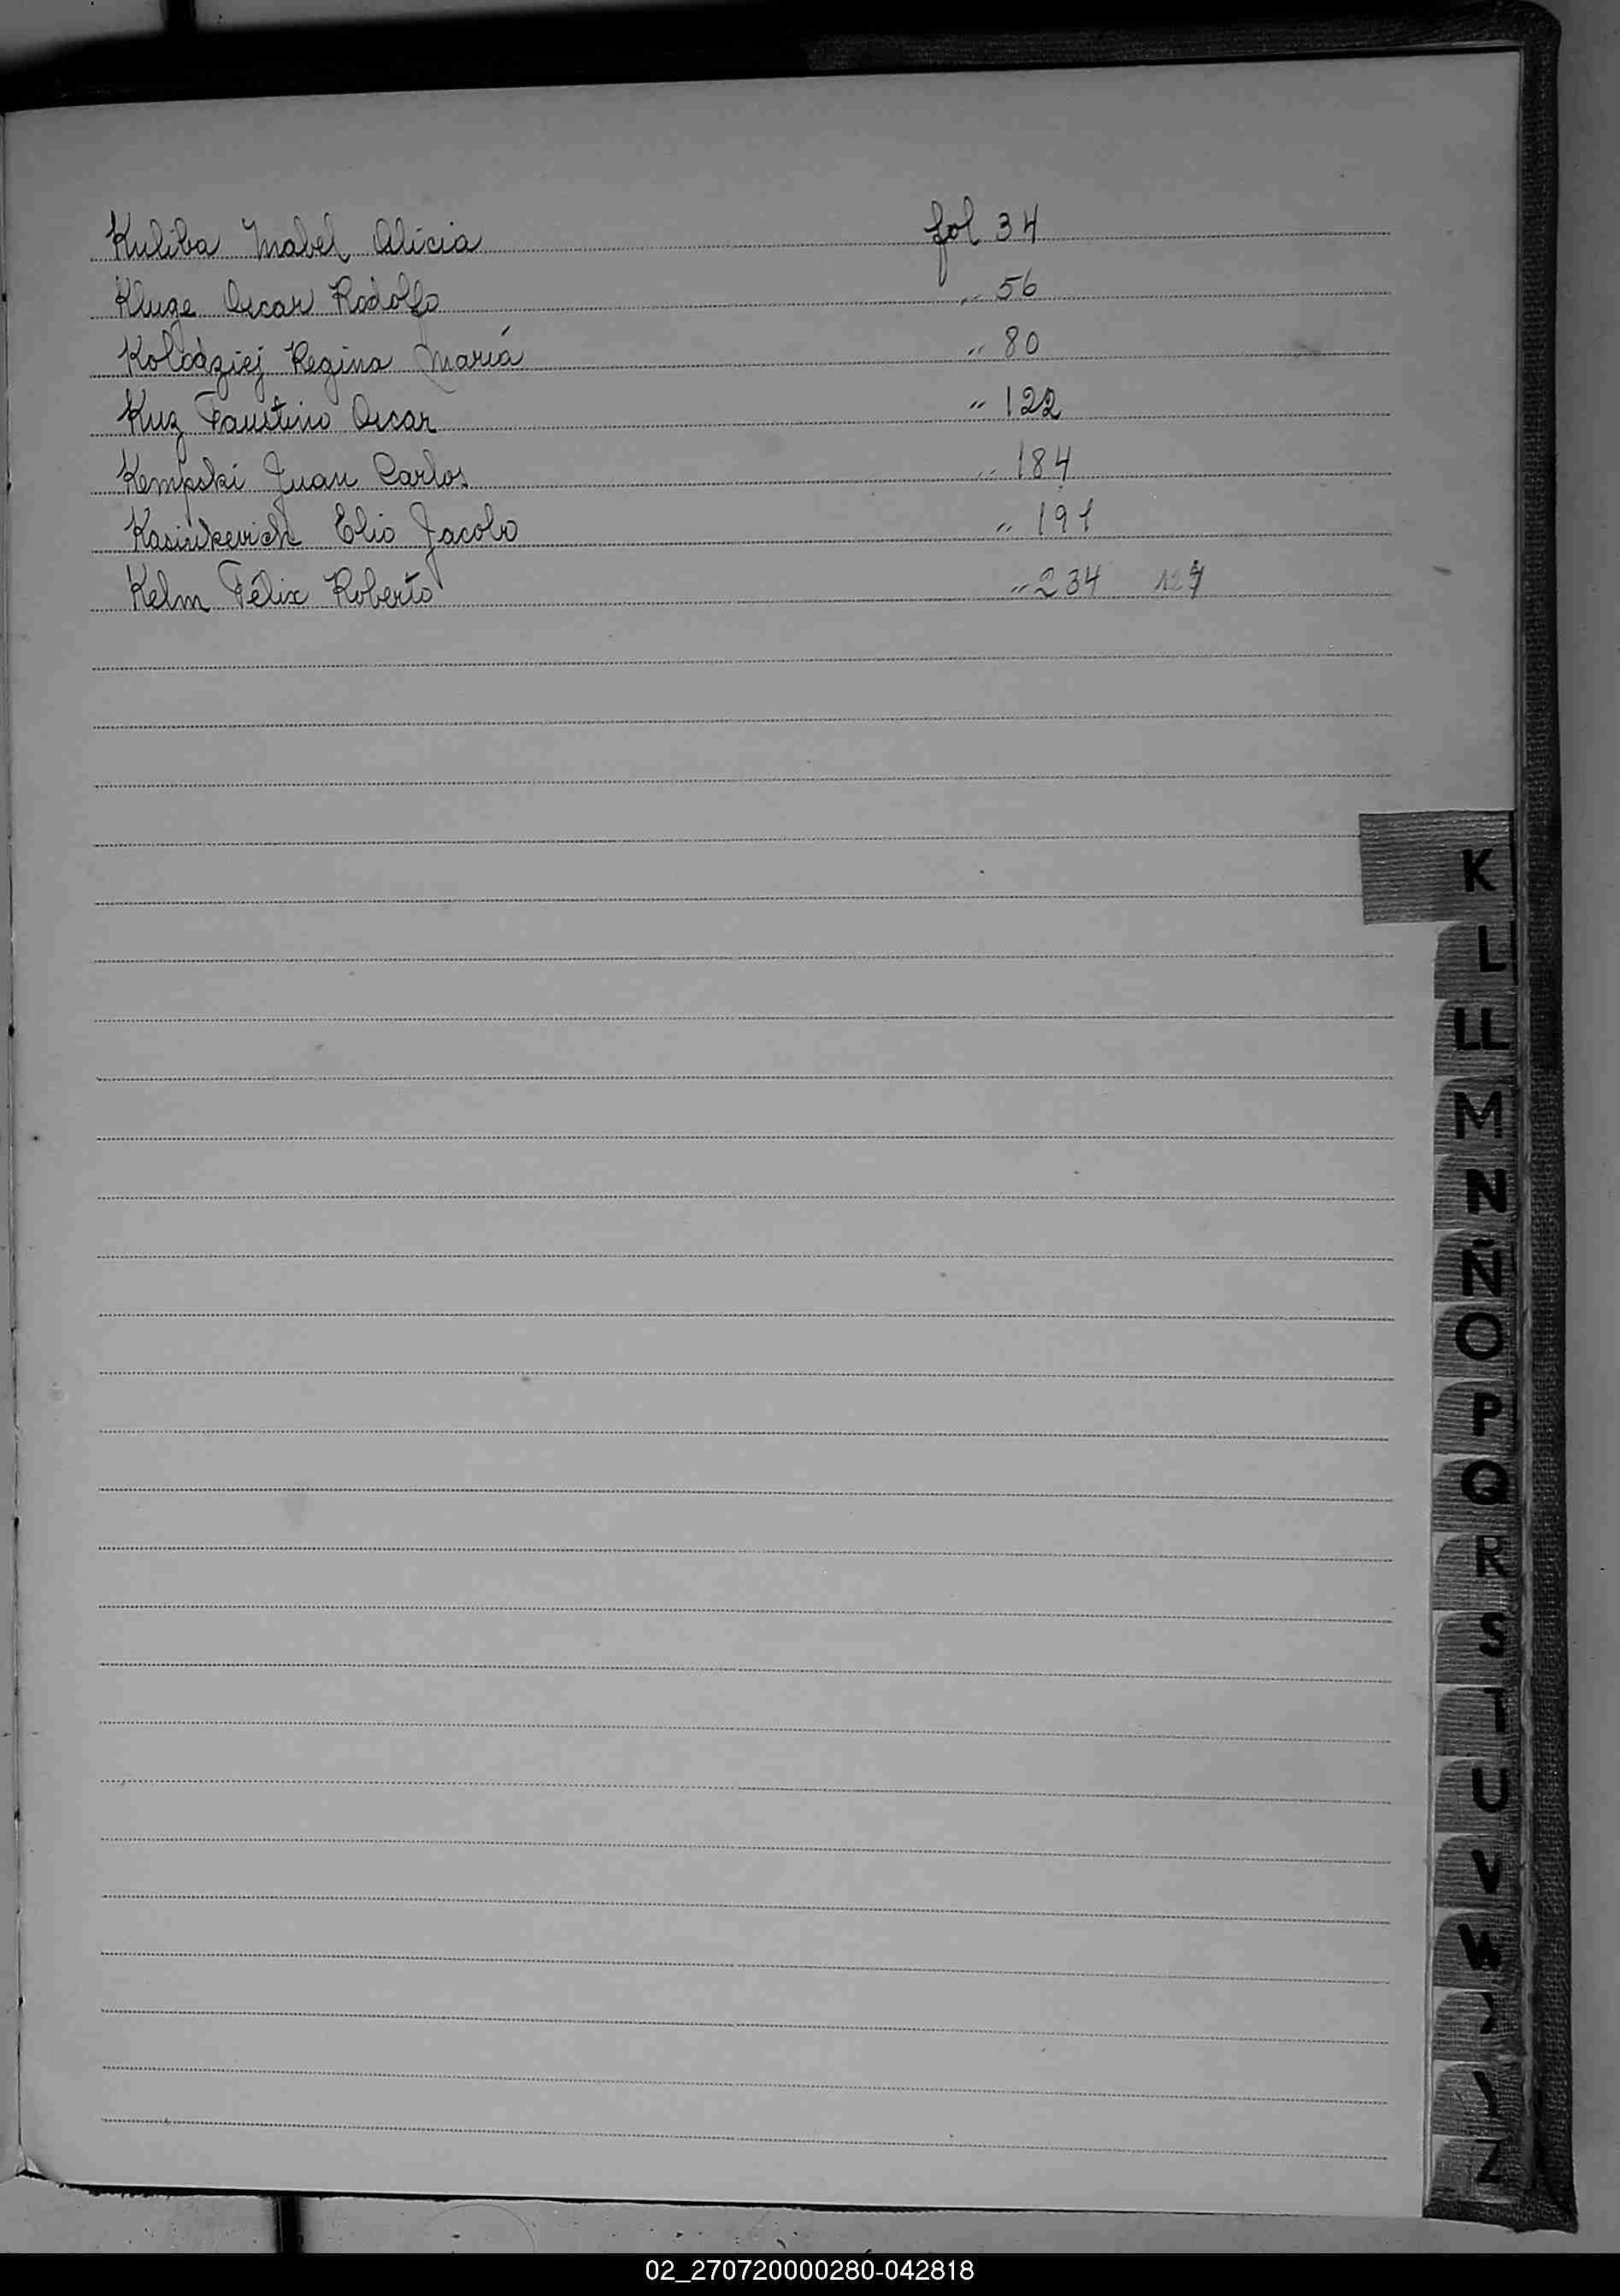 Kuliba Mabel Alicia fol 34
Kluge Oscar Rodolfo " 56
Kolodziej Regina María " 80
Kuz Faustino Oscar " 122
Kempski Juan Carlos " 184
Kasinkevich Elio Jacobo " 191
Kelm Félix Roberto " 234
K
L
LL
M
N
Ñ
O
P
Q
R
S
T
U
V
W
Z
02_270720000280-042818